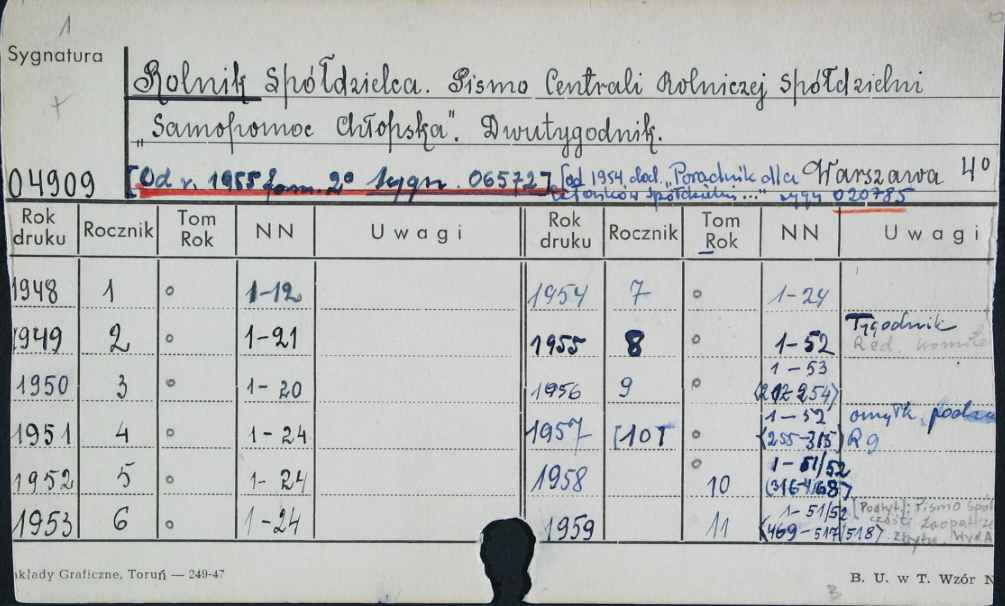 1
Sygnatura
Rolnik Spółdzielca. Pismo Centrali Rolniczej Spółdzielni
„Samopomoc Chłopska". Dwutygodnik.
04909
[Od r. 1955 form. 2º sygn. 065727] [od 1954 dod. „Poradnik dla Warszawa 4º
członków spółdzielni..." sygn 020785
Rok druku Rocznik Tom Rok NN Uwagi Rok druku Rocznik Tom Rok NN Uwagi
1948 1 º 1-12 1954 7 º 1-24
1949 2 º 1-21 1955 8 º 1-52 Tygodnik
Red.
1950 3 º 1-20 1956 9 º 1-53
1951 4 º 1-24 1957 [10] º 1-52 omyłk.
(255-315) R9
1952 5 º 1-24 1958 º 10 1-51/52
1953 6 º 1-24 1959 11 1-51/52 [Podtyt]: Pismo
(469-517/518)
kłady Graficzne, Toruń — 249-47
B. U. w T. Wzór N